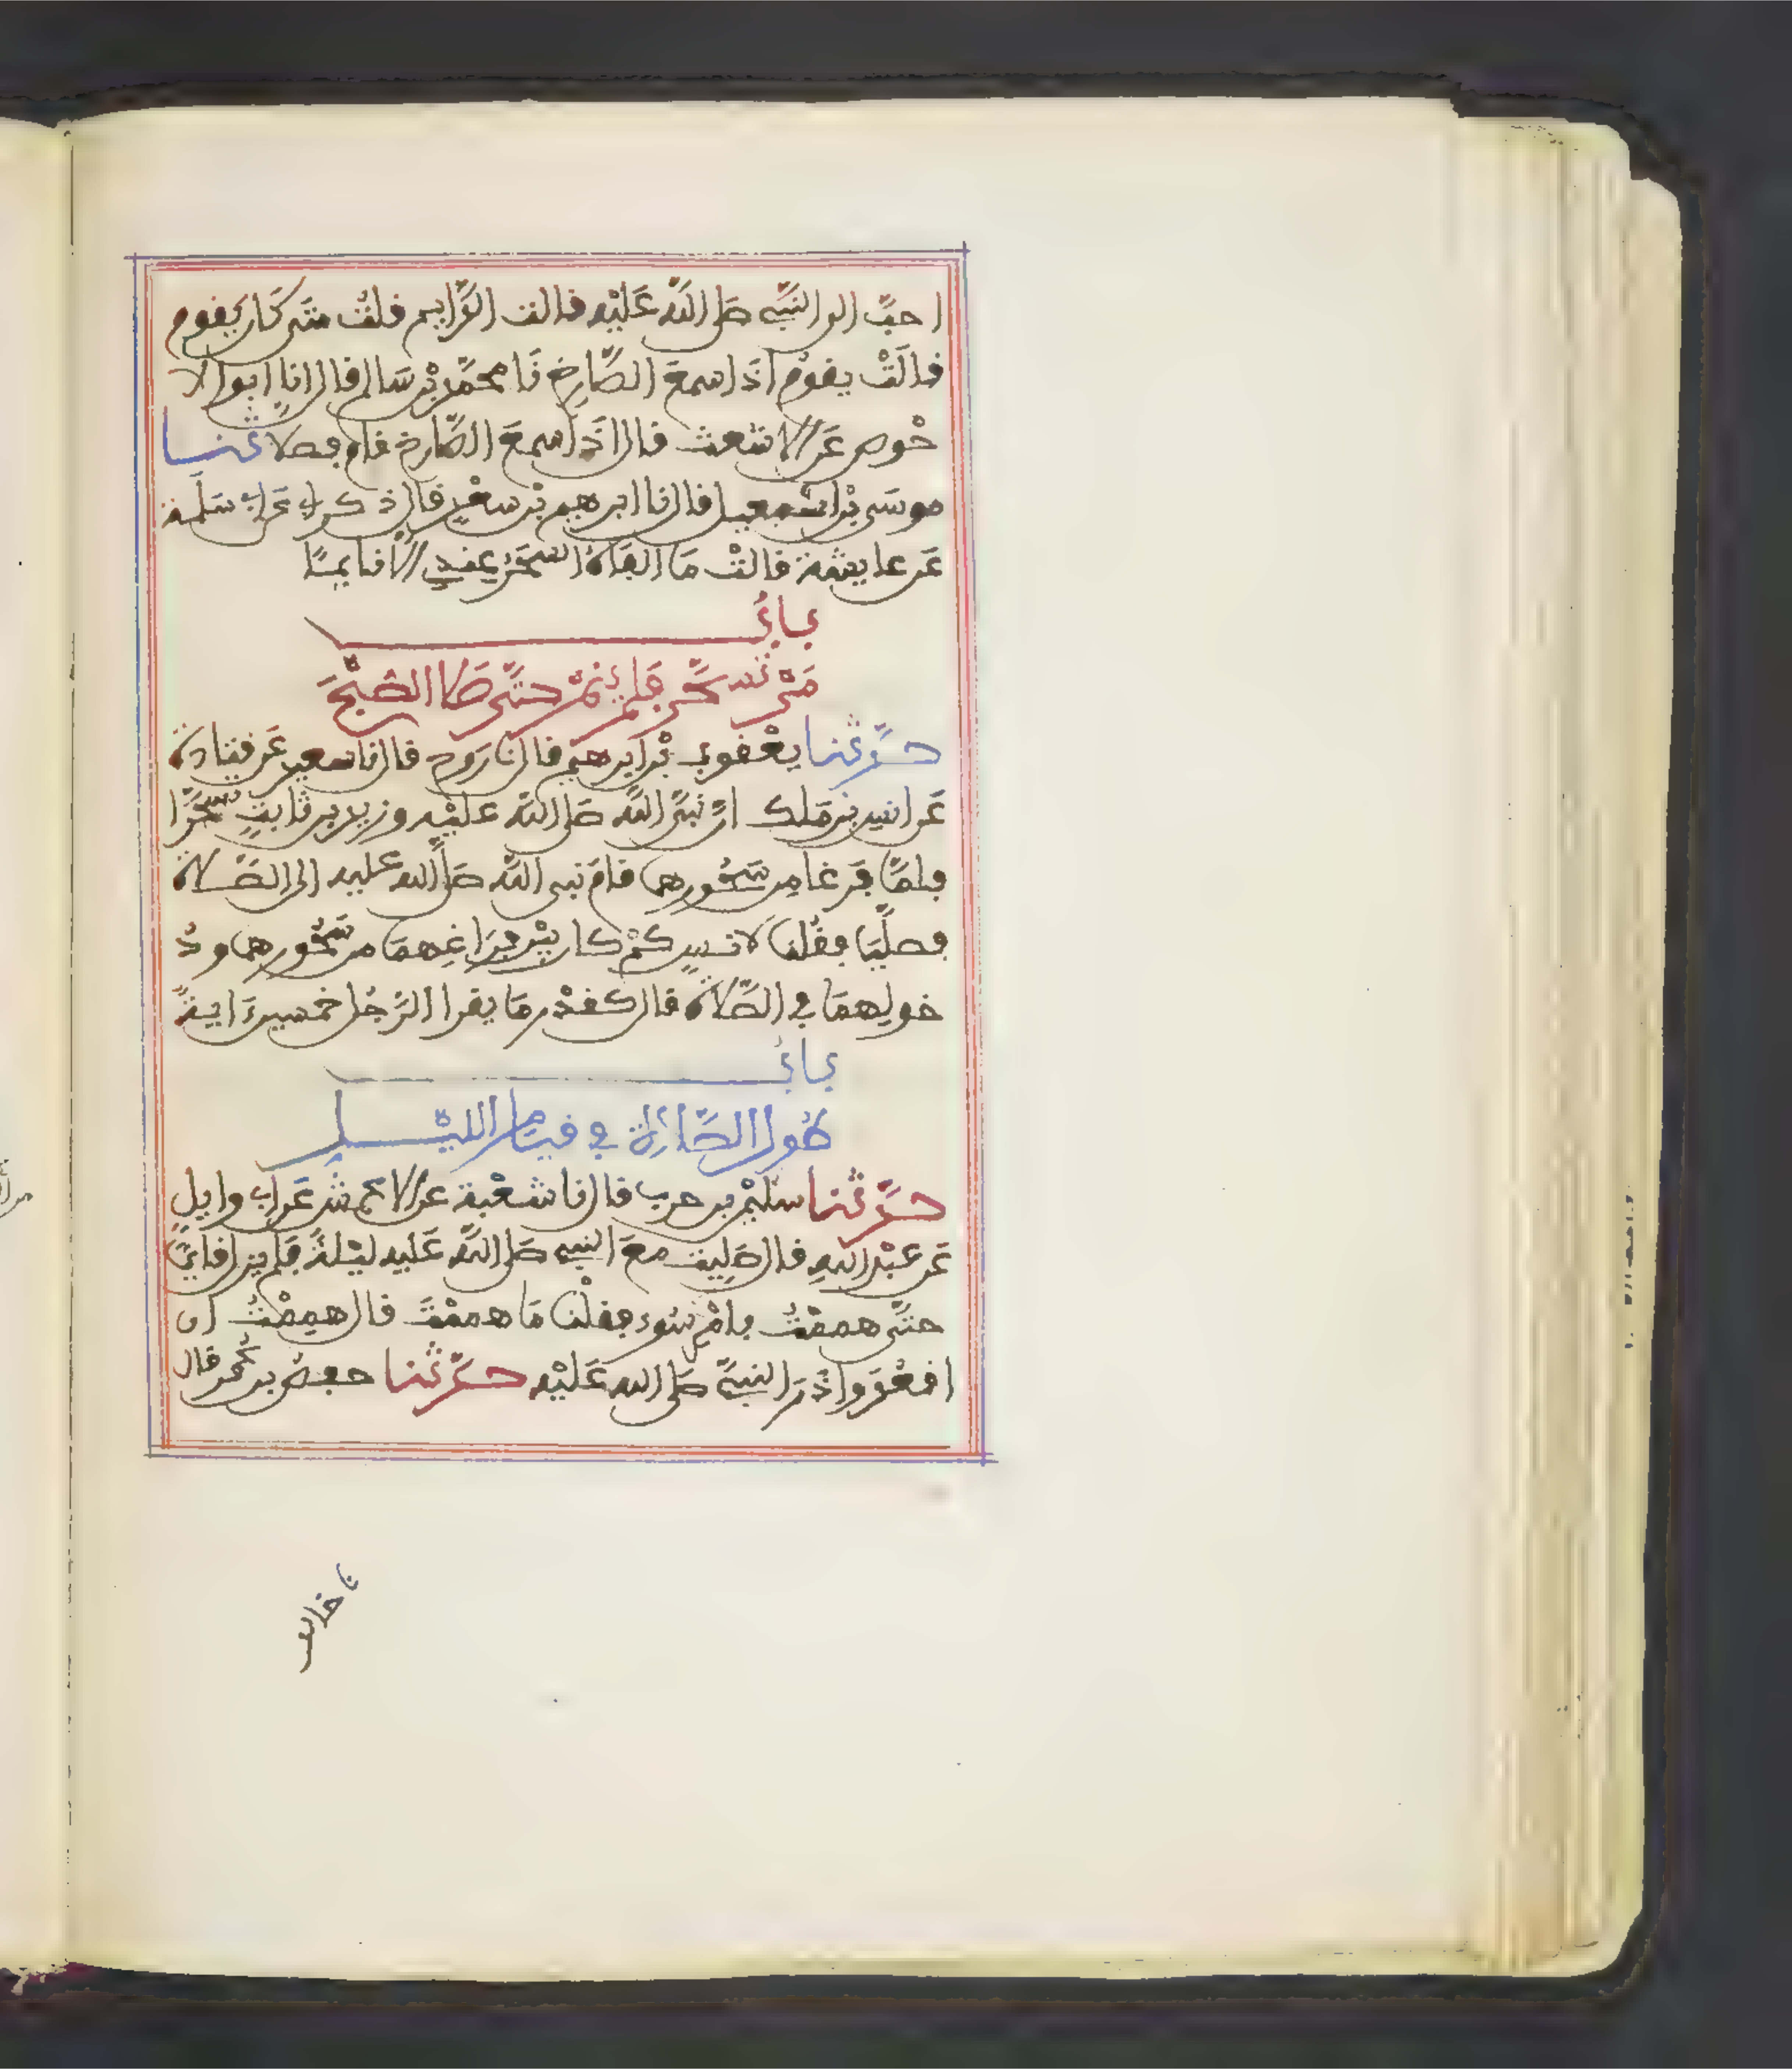 احبَّ الى النبيِّ صلى اللَّه عَلَيْه قالت الدَّايم قلتُ متى كَان يَقوم
قالَتْ يقومُ اذَا سمعَ الصَّارِخ نَا محمَّد بْن سَالم قال انا ابوا الا
حْوص عَن الاشعث قال اذَا سمعَ الصَّارخ قام فصلا ثنا
موسَى بْن اسْمعيل قال نا ابرهيم بْن سعْدٍ قال ذكر ابي عَن ابي سَلَمة
عَن عايشة قالتْ مَا الفَاهُ السَّحَرُ عِندي الا نايمًا
بابُ
مَنْ تسحَّر فلم يَنمْ حتَّى صَلا الصُّبْحَ
حدَّثنا يعْقوب بْن ابرهيم قال نا رَوح قال نا سعيد عَن قتادة
عَن انسِ بنِ مَلك انَّ نبيَّ اللَّه صَلى اللَّه عليْه وزيد بن ثابتٍ تسحَّرَا
فلمَّا فَرغَا مِن سَحُورهما قامَ نبي اللَّه صَلَّى الله عليه الى الصَّلاة
فصلَّيَا فقُلنا لانسٍ كمْ كان بيْن فَرَاغِهمَا من سَحُورهما ودُ
خولِهمَا في الصَّلاة قال كقدْر مَا يقرا الرَّجُل خمسينَ ايةً
بابُ
طُول الصَّلاة في قيام الليْل
حدَّثنا سليمْن بن حرب قال نا شعْبة عن الاعمش عَن ابي وايلٍ
عَن عبْد اللهِ قال صَليت معَ النبي صَلى اللَّه عَليه ليْلةً فلم يزل قايمًا
حتَّى هممْتُ بامْر سَوء فقلْنا مَا هممْتَ قال هممْتُ ان
اقعُدَ واذَرَ النبيَّ صَلى الله عَليْه حدَّثنا حفص بن عُمر قال
نا خالد